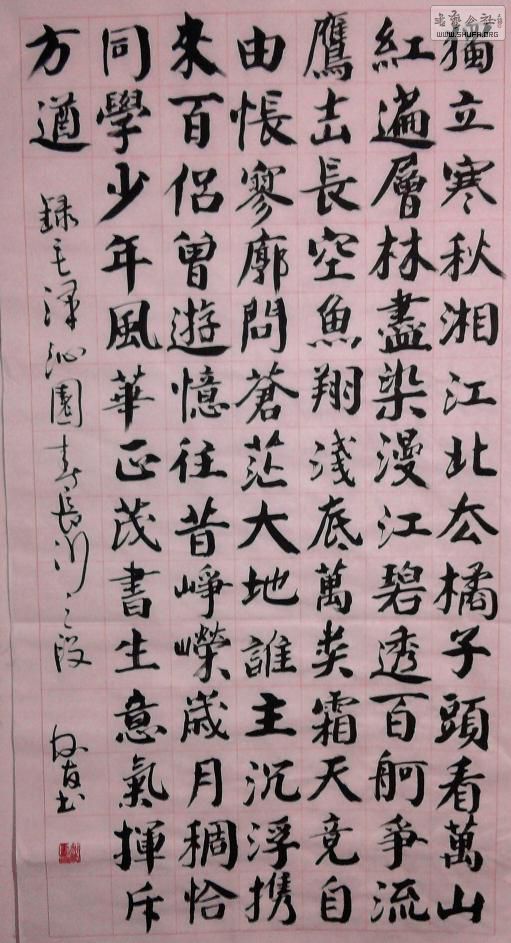 獨立寒秋湘江北去橘子頭看萬山
紅遍層林盡染漫江碧透百舸爭流
鷹击長空魚翔淺底萬类霜天竞自
由悵寥廓問蒼茫大地誰主沉浮携
來百侣曾遊憶往昔崢嶸歲月稠恰
同學少年風華正茂書生意氣揮斥
方遒
録毛泽沁園春長沙之段
书
WWW.SHUFA.ORG